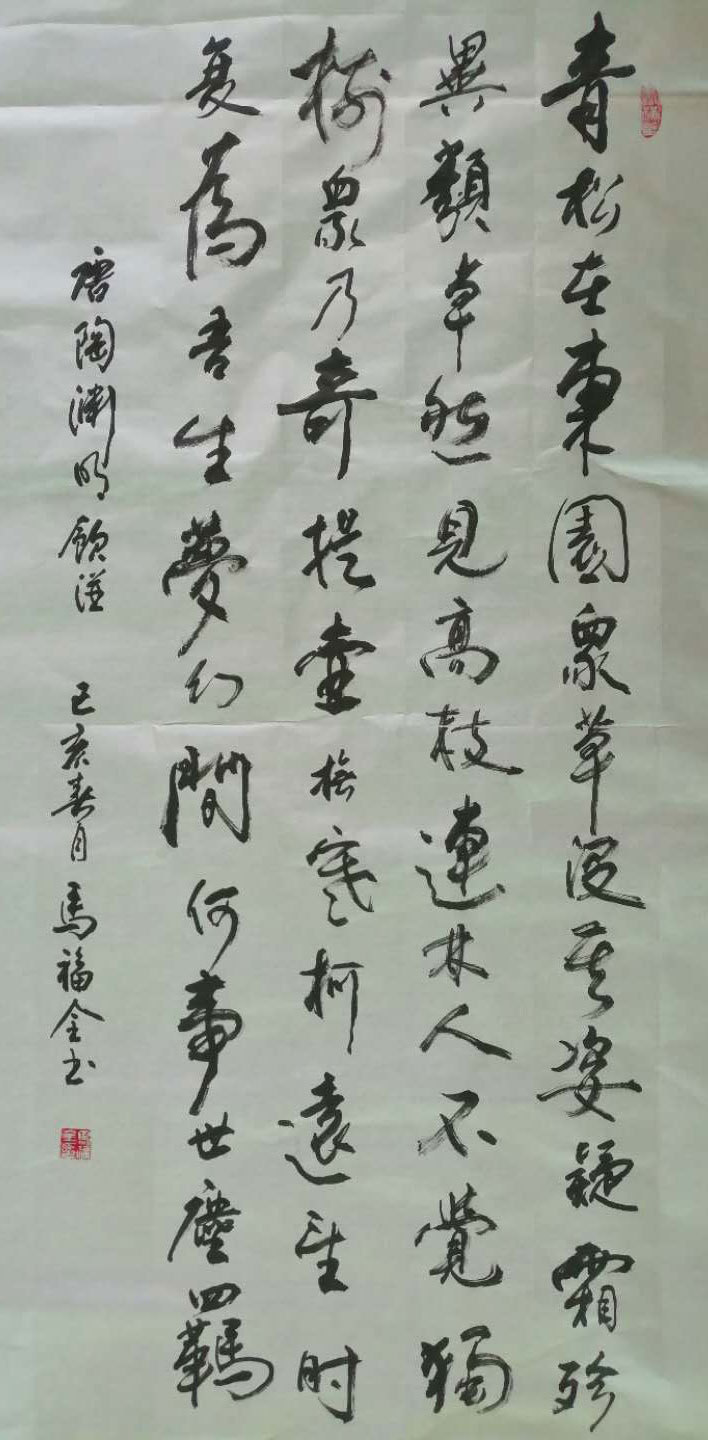 青松在東園眾草没其姿疑霜殄
異類卓然見高枝連林人不覺獨
樹眾乃奇提壺撫寒柯遠望时
复為吾生夢幻間何事世塵四羈
唐陶淵明飲酒 己亥春月 馬福全书